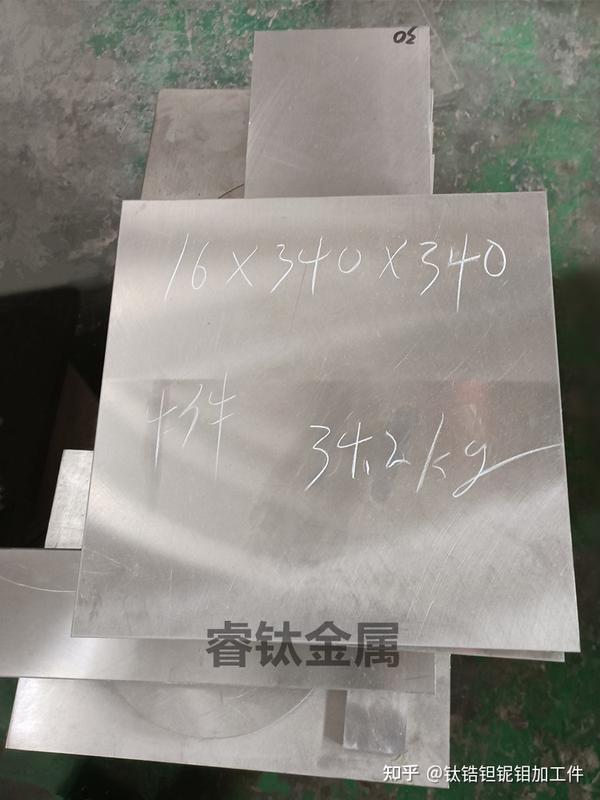 30
16×340×340
4件
34.2kg
睿钛金属
知乎 @钛锆钽铌钼加工件